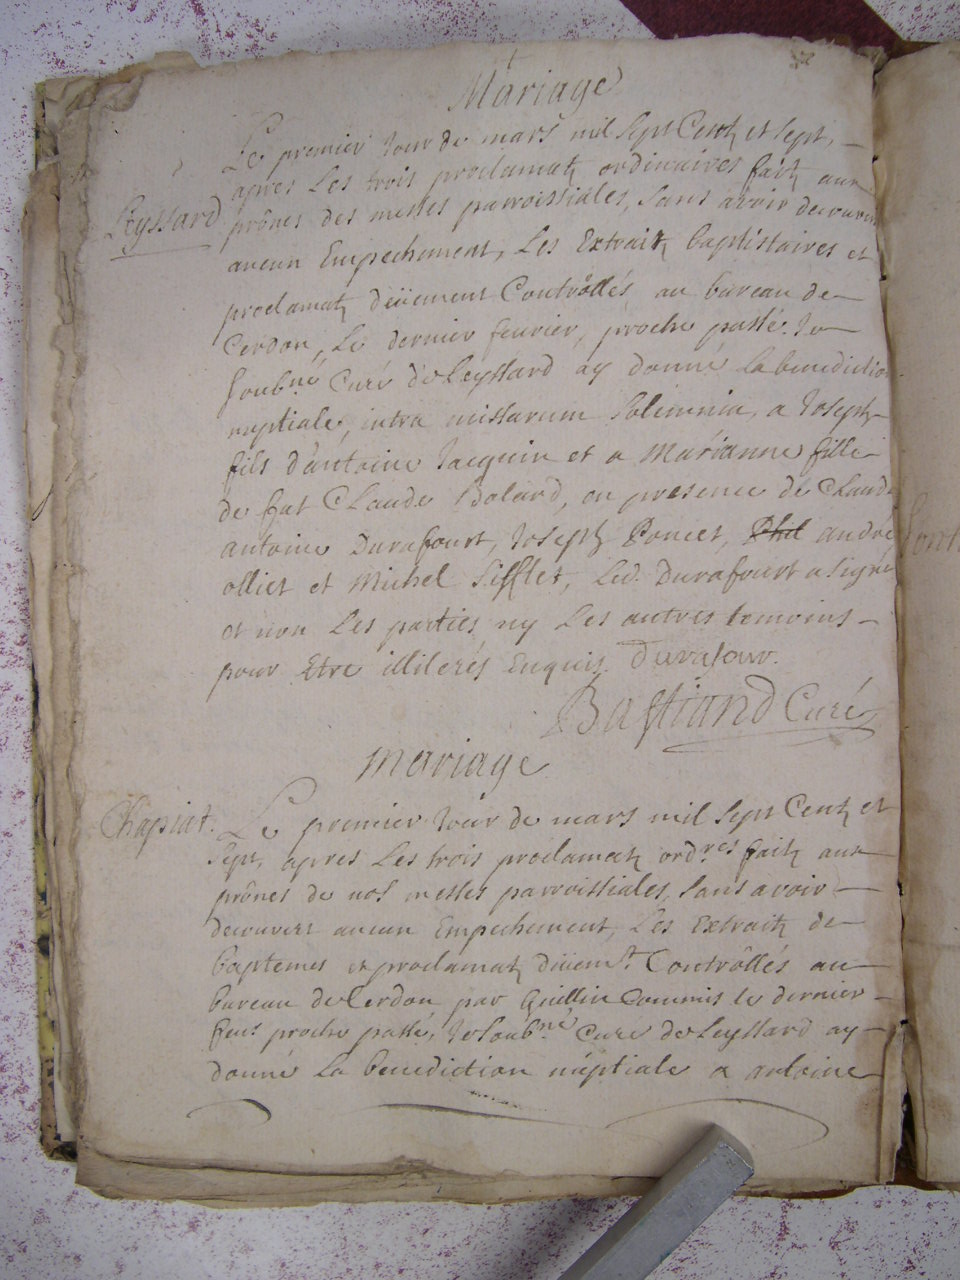 Mariage
Le premier Jour de mars mil Sept Centz et Sept,
apres Les trois proclamatz ordinaires faitz aux
Leyssard
prônes des messes parroissiales, Sans avoir decouvert
aucun Empechement, Les Extraitz baptistaires et
proclamatz düement Contrôllés au bureau de
Cerdon, Le dernier feuvrier, proche passé. Je
Soubné Curé de Leyssard ay donné La benediction
nuptiale, intra missarum Solemnia, a Joseph
fils d'antoine Jacquin et a Marianne fille
de fut CLaude Bolard, en presence de CLaude
antoine Durafourt, Joseph Poncet, Phil andré
olliet et Michel Sifflet, Led. Durafourt a Signé
et non Les parties ny Les autres temoins
pour Etre illiterés Enquis. Durafour.
Bastiand Curé
Mariage
Chapiat.
Le premier Jour de mars mil Sept Centz et
Sept, apres Les trois proclamatz ordres faitz aux
prônes de nos messes parroissiales, Sans avoir
decouvert aucun Empechement, Les Extraitz de
baptemes et proclamatz düemt. Contrôllés au
bureau de Cerdon par Guillin Commis le dernier
feur. proche passé, Je Soubné Curé de Leyssard ay
donné La benediction nuptiale a antoine